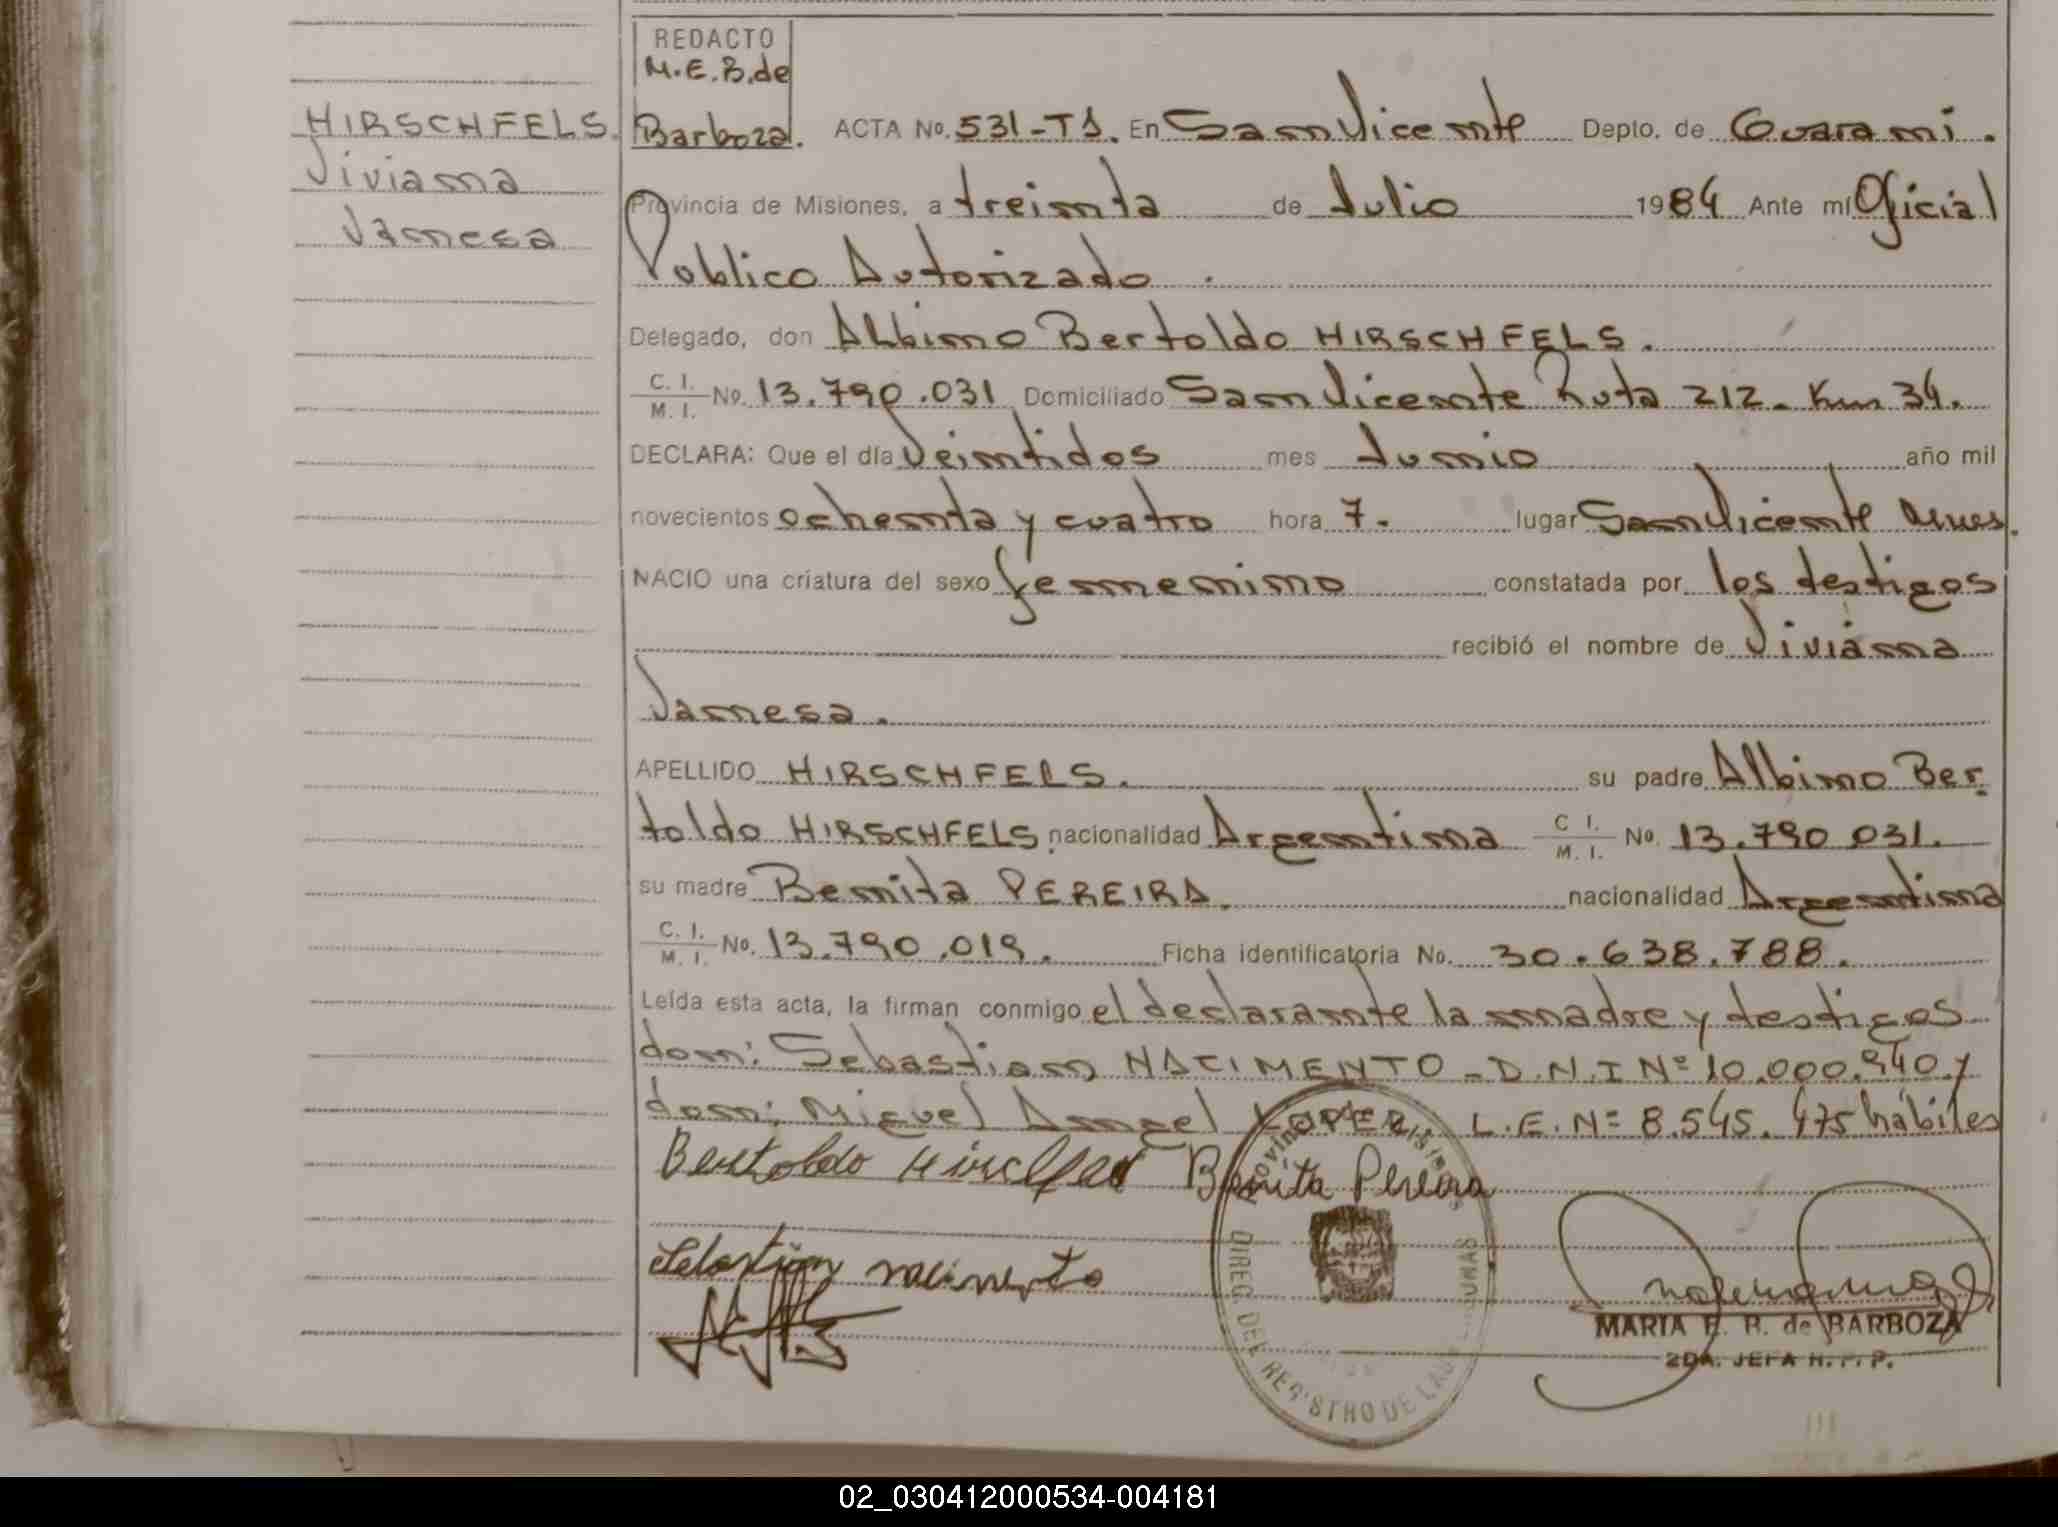 REDACTO
M.E.B. de
Barboza.
HIRSCHFELS.
Viviana
Vanesa
ACTA No. 531-T3. En San Vicente Depto. de Guarani.
Provincia de Misiones, a treinta de Julio 1984 Ante mí Oficial
Publico Autorizado.
Delegado, don Albino Bertoldo HIRSCHFELS.
C. I. / M. I. No. 13.790.031 Domiciliado San Vicente Ruta 212. Km 34.
DECLARA: Que el día Veintidos mes Junio año mil
novecientos ochenta y cuatro hora 7. lugar San Vicente
NACIO una criatura del sexo femenino constatada por los testigos
recibió el nombre de Viviana
Vanesa.
APELLIDO HIRSCHFELS. su padre Albino Ber
toldo HIRSCHFELS. nacionalidad Argentina C. I. / M. I. No. 13.790.031.
su madre Benita PEREIRA. nacionalidad Argentina
C. I. / M. I. No. 13.790.019. Ficha identificatoria No. 30.638.788.
Leída esta acta, la firman conmigo el declarante la madre y testigos
don: Sebastian NACIMENTO - D.N.I Nº 10.000.940 y
don: Miguel Angel LOPEZ L.E. Nº 8.545.475 hábiles
Bertoldo Benita Pereira
Sebastian nacimento
DIREC. DEL REGISTRO DE LAS
MARIA E. B. de BARBOZA
2DA. JEFA R. P. P.
02_030412000534-004181